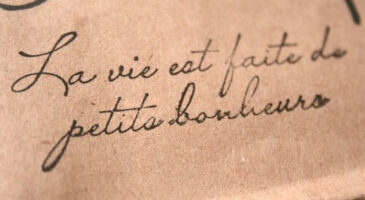 La vie est faite de
petits bonheurs